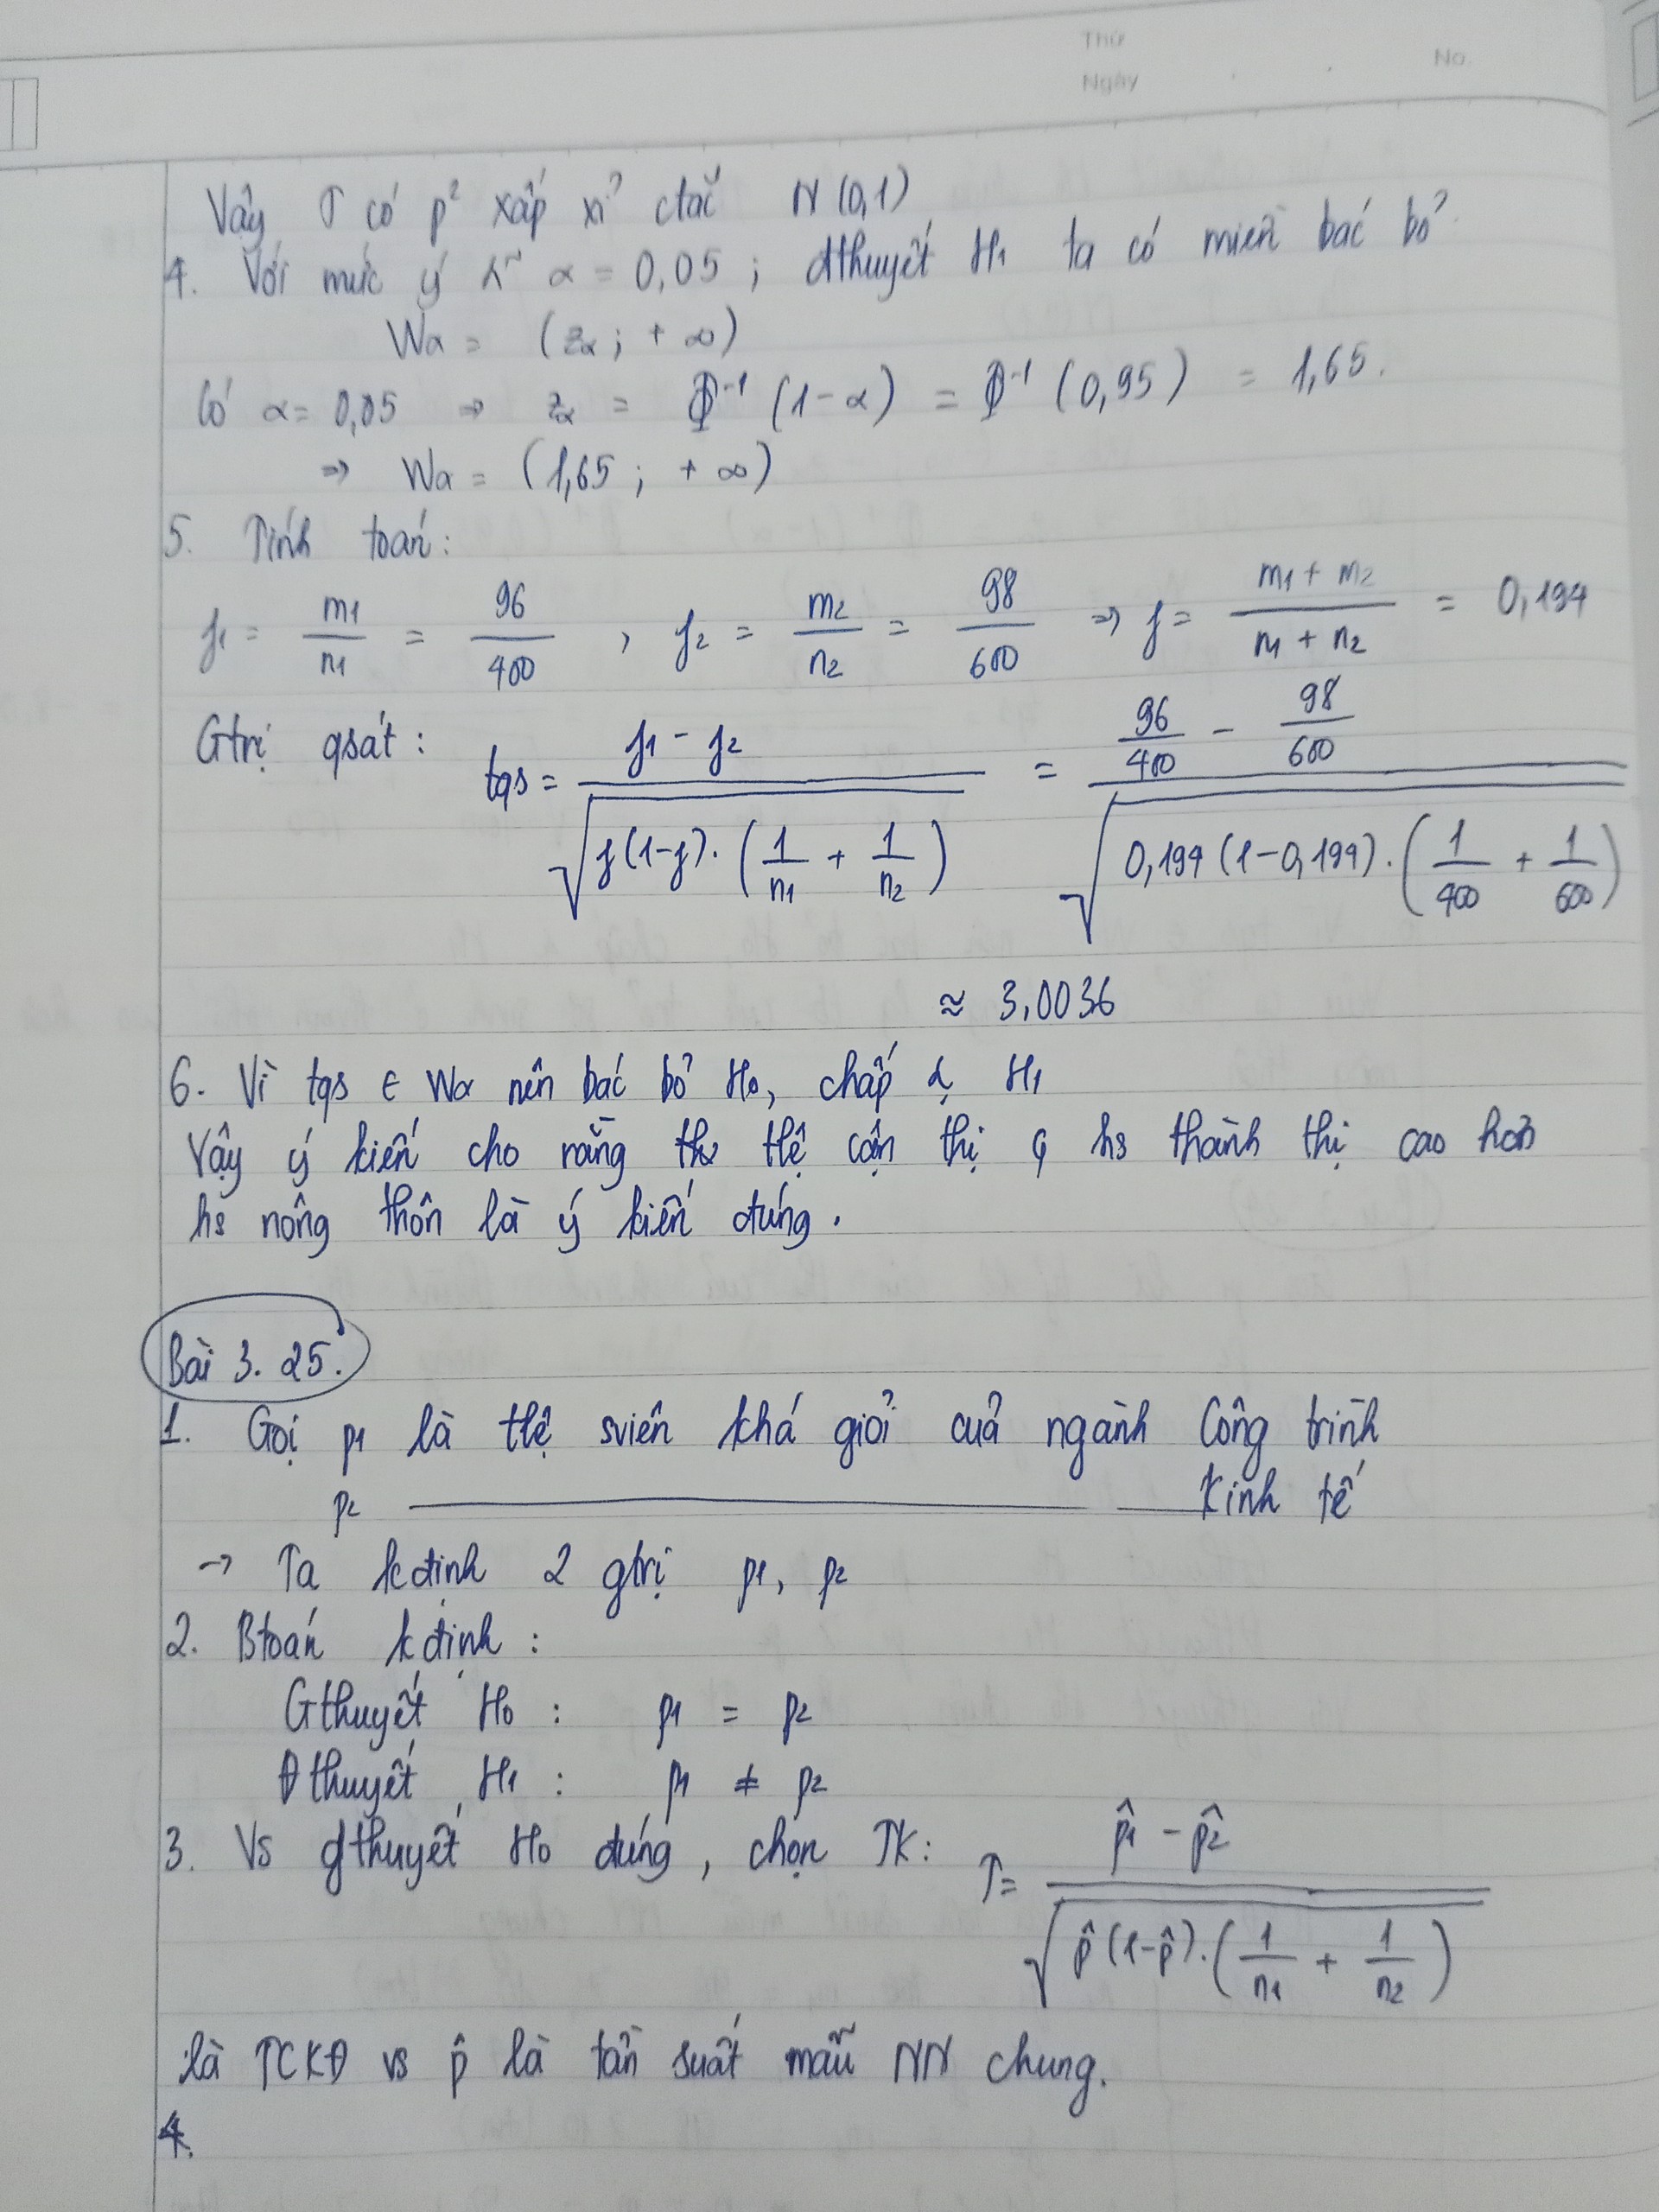 Thứ
Ngày
No.
Vậy T có p² xấp xỉ ctắc N(0,1)
4. Với mức ý n~ α = 0,05 ; đthuyết H1 ta có miền bác bỏ
Wα = (zα ; + ∞)
Có α = 0,05 ⇒ zα = Φ⁻¹ (1-α) = Φ⁻¹ (0,95) = 1,65.
⇒ Wα = (1,65 ; + ∞)
5. Tính toán:
f1 = m1/n1 = 96/400 , f2 = m2/n2 = 98/600 ⇒ f = (m1 + m2)/(n1 + n2) = 0,194
Gtrị qsát : tqs = (f1 - f2)/√(f(1-f).(1/n1 + 1/n2)) = (96/400 - 98/600)/√(0,194(1-0,194).(1/400 + 1/600))
≈ 3,0036
6. Vì tqs ∈ Wα nên bác bỏ H0, chấp H1
Vậy ý kiến cho rằng tlệ cận thị hs thành thị cao hơn
hs nông thôn là ý kiến đúng.
Bài 3.25.
1. Gọi p1 là tlệ sviên khá giỏi của ngành Công trình
p2 ——— Kinh tế
→ Ta kđịnh 2 gtrị p1, p2
2. Btoán kđịnh :
Gthuyết H0 : p1 = p2
Đthuyết H1 : p1 ≠ p2
3. Vs gthuyết H0 đúng, chọn TK: T = (p̂1 - p̂2)/√(p̂(1-p̂).(1/n1 + 1/n2))
là TCKĐ vs p̂ là tần suất mẫu NN chung.
4.